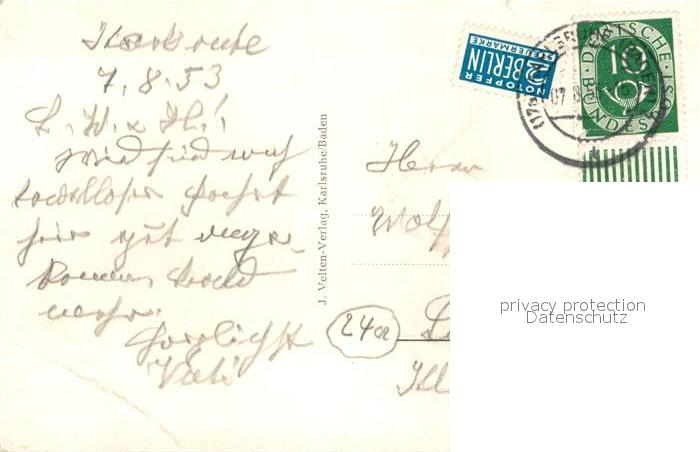 Karlsruhe
7.8.53
L. W. u. H.!
sind nach
tadelloser Fahrt
hier gut ange-
kommen
mehr.
Herzlichst
Vati
J. Velten-Verlag, Karlsruhe/Baden
NOTOPFER
2 BERLIN
STEUERMARKE
DEUTSCHE
BUNDESPOST
10
07. 8.
Herrn
Wolf
24a
privacy protection
Datenschutz